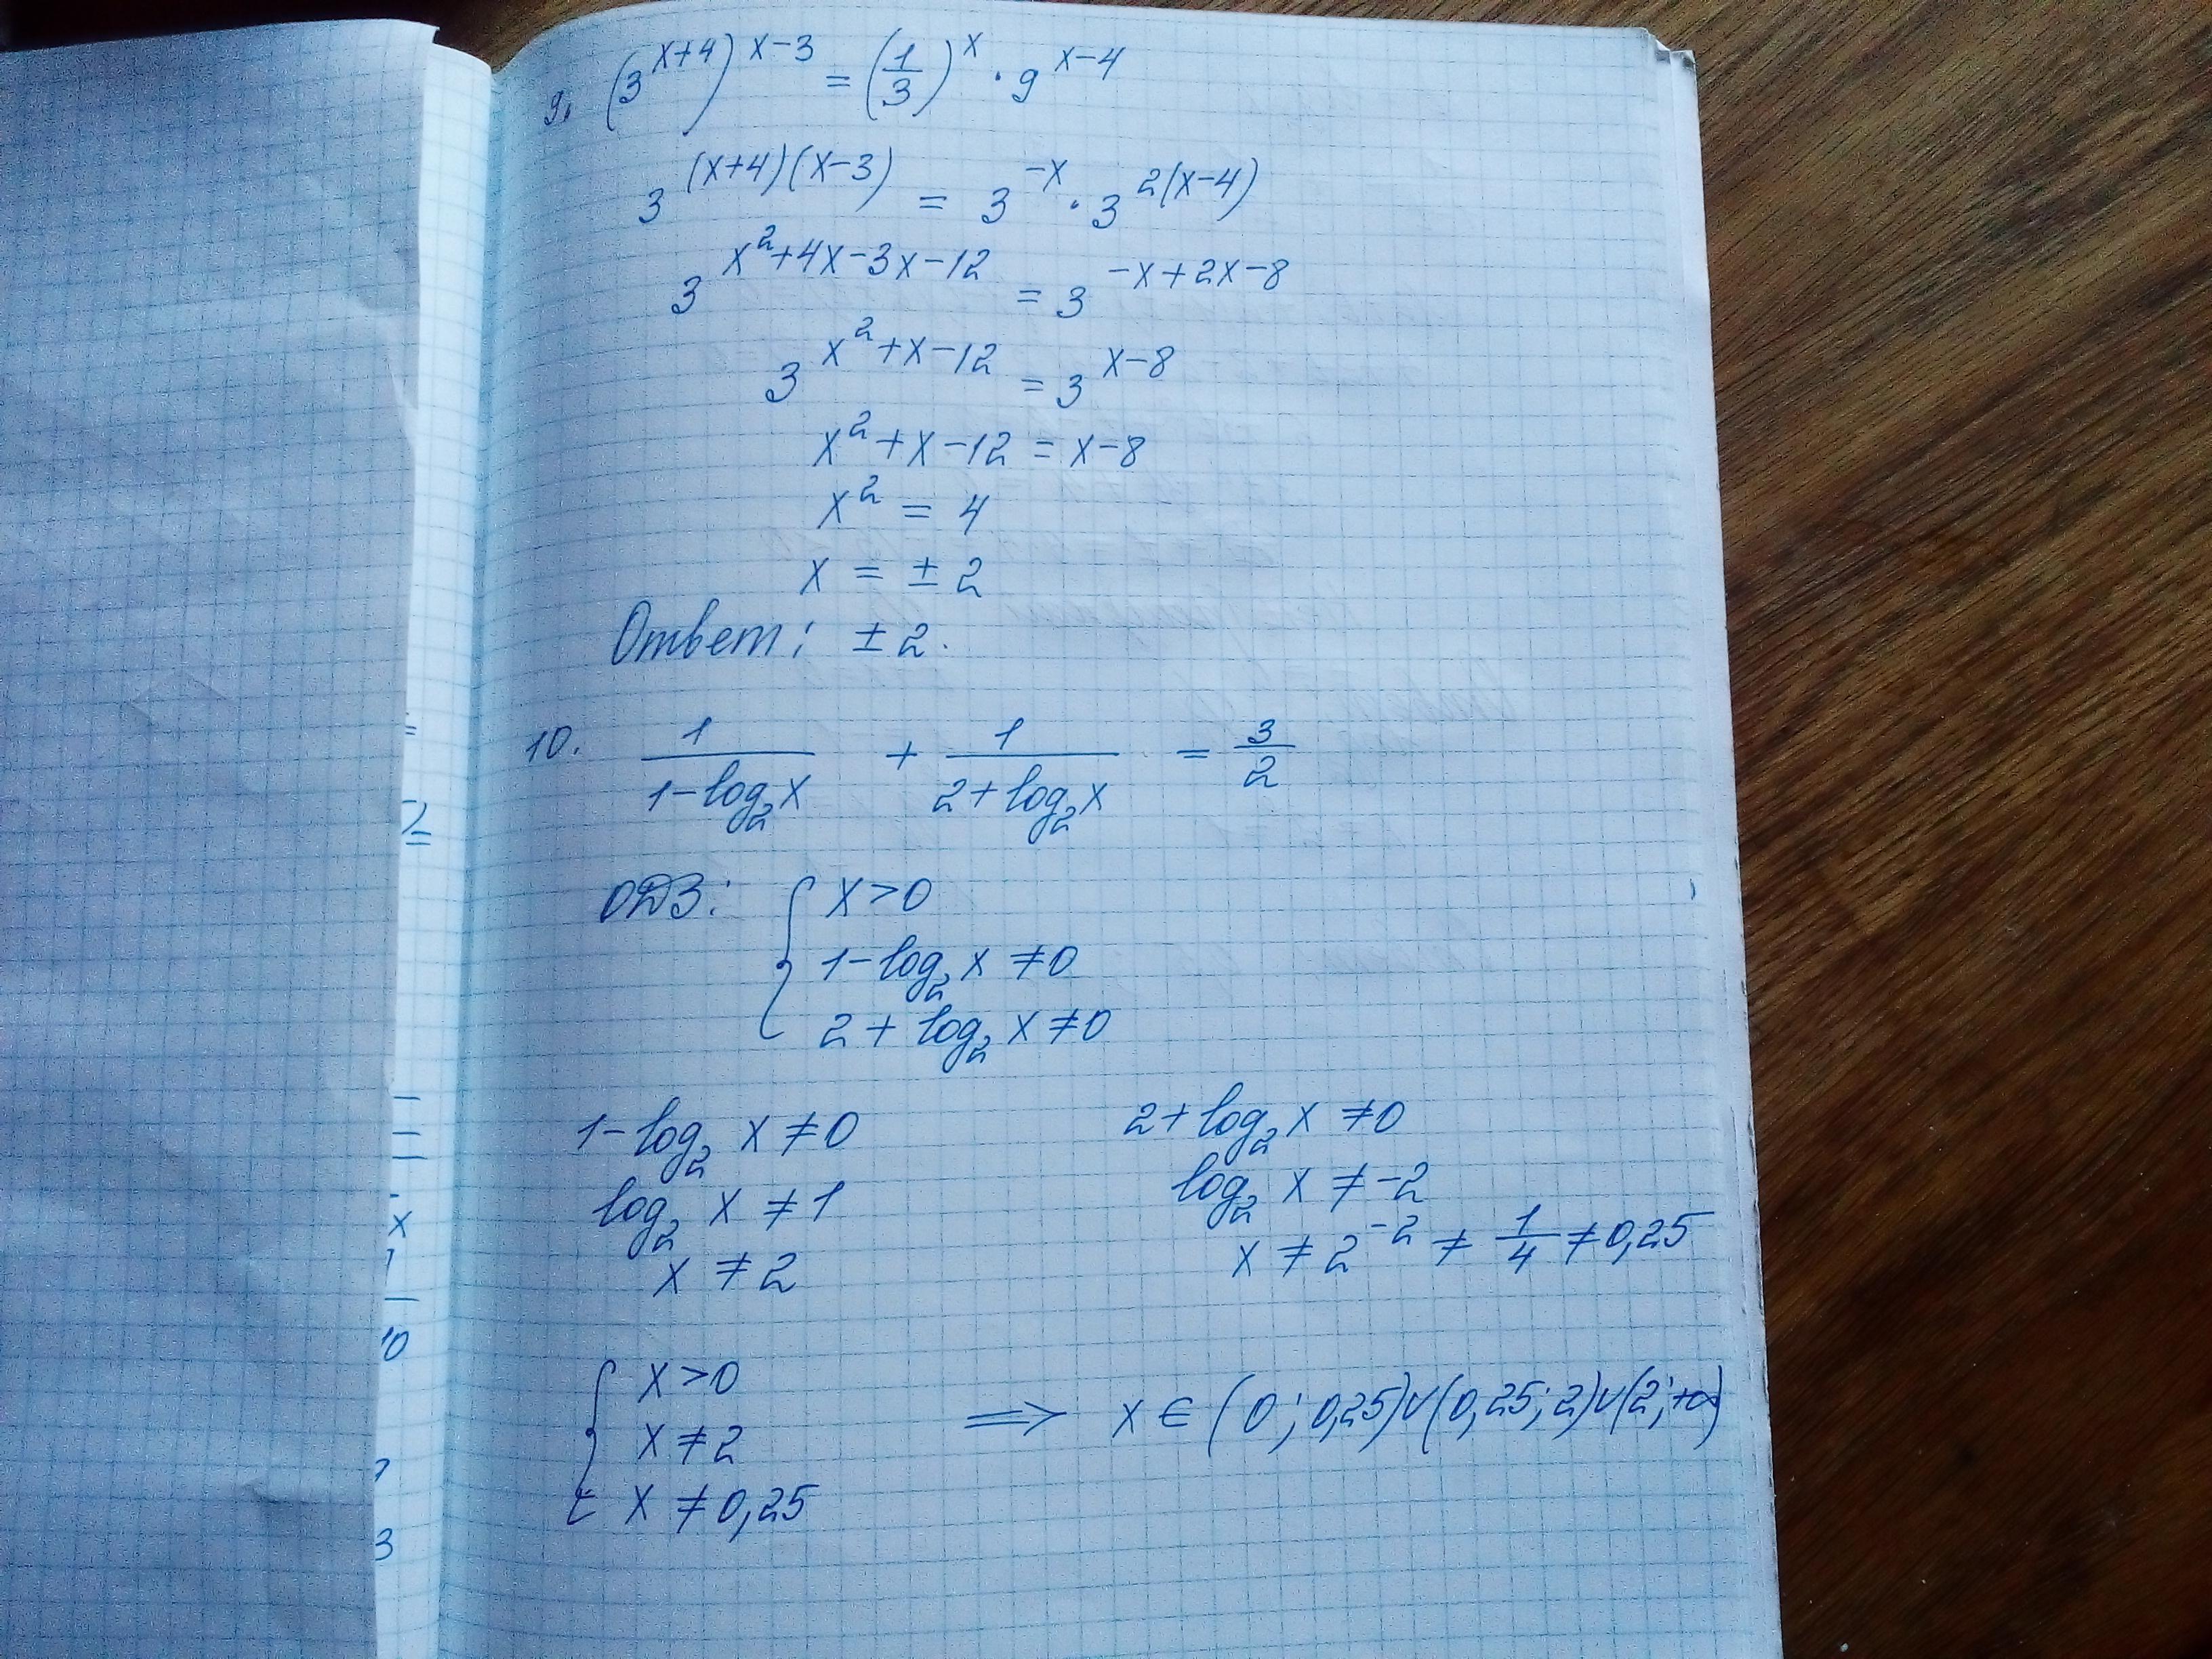 9. (3^(x+4))^(x-3) = (1/3)^x · 9^(x-4)
3^((x+4)(x-3)) = 3^(-x) · 3^(2(x-4))
3^(x²+4x-3x-12) = 3^(-x+2x-8)
3^(x²+x-12) = 3^(x-8)
x²+x-12 = x-8
x² = 4
x = ±2
Ответ: ±2.
10. 1/(1-log₂x) + 1/(2+log₂x) = 3/2
ОДЗ: { x>0
1-log₂ x ≠0
2+log₂ x ≠0
1-log₂ x ≠0
log₂ x ≠ 1
x ≠ 2
2+log₂ x ≠0
log₂ x ≠ -2
x ≠ 2^(-2) ≠ 1/4 ≠ 0,25
{ x>0
x ≠ 2
x ≠ 0,25
⟹ x ∈ (0; 0,25)∪(0,25; 2)∪(2; +∞)
=
x
10
3